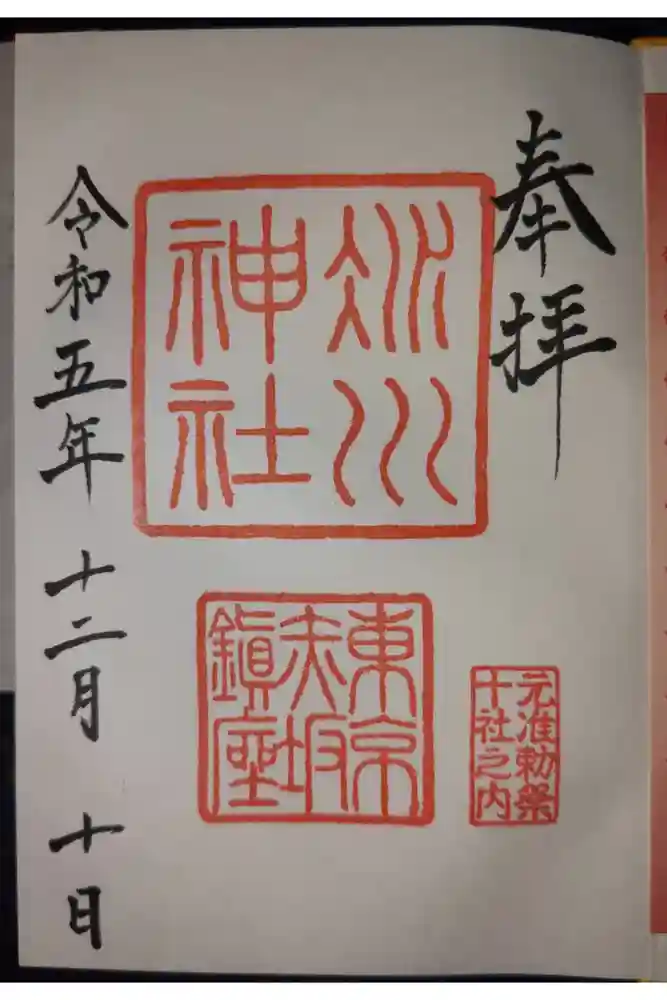 奉拝
元准勅祭
十社之内
氷川
神社
東京
赤坂
鎮座
令和五年十二月十日